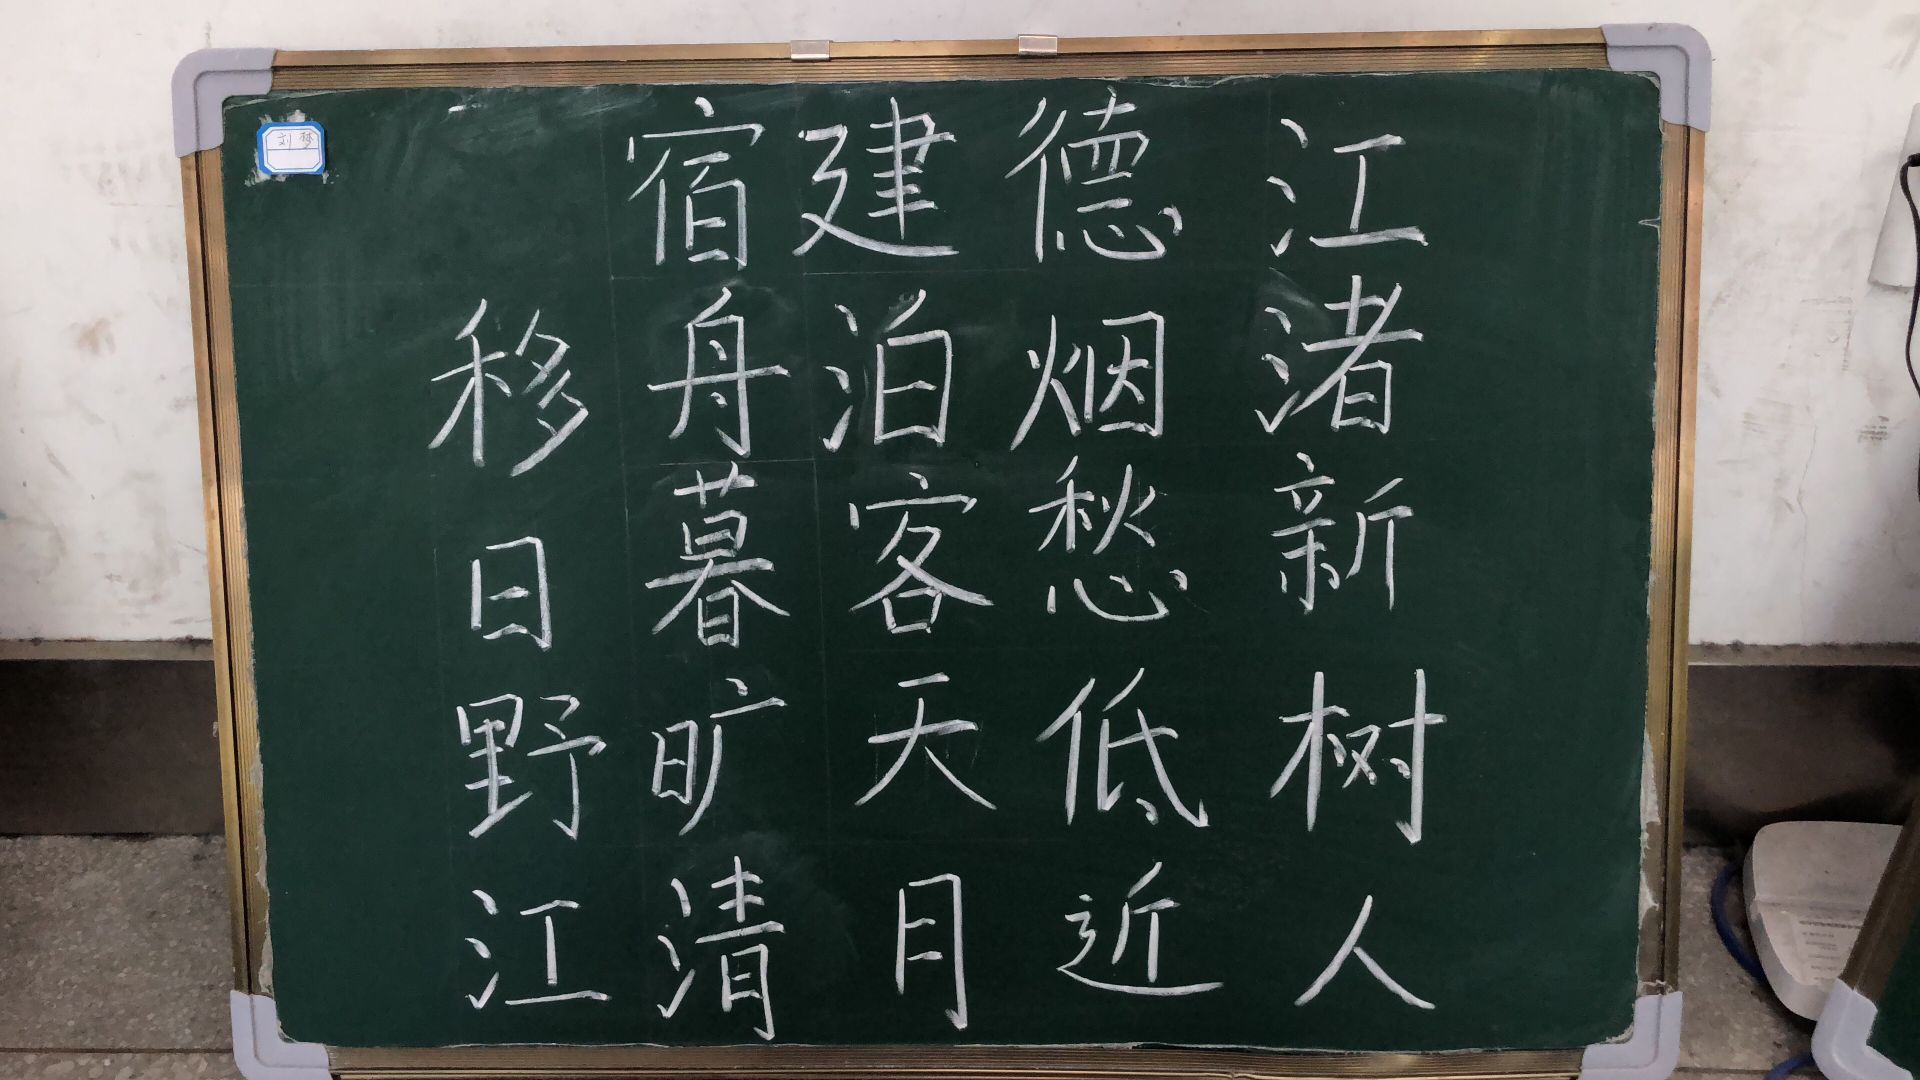 刘梦
宿建德江
移舟泊烟渚
日暮客愁新
野旷天低树
江清月近人